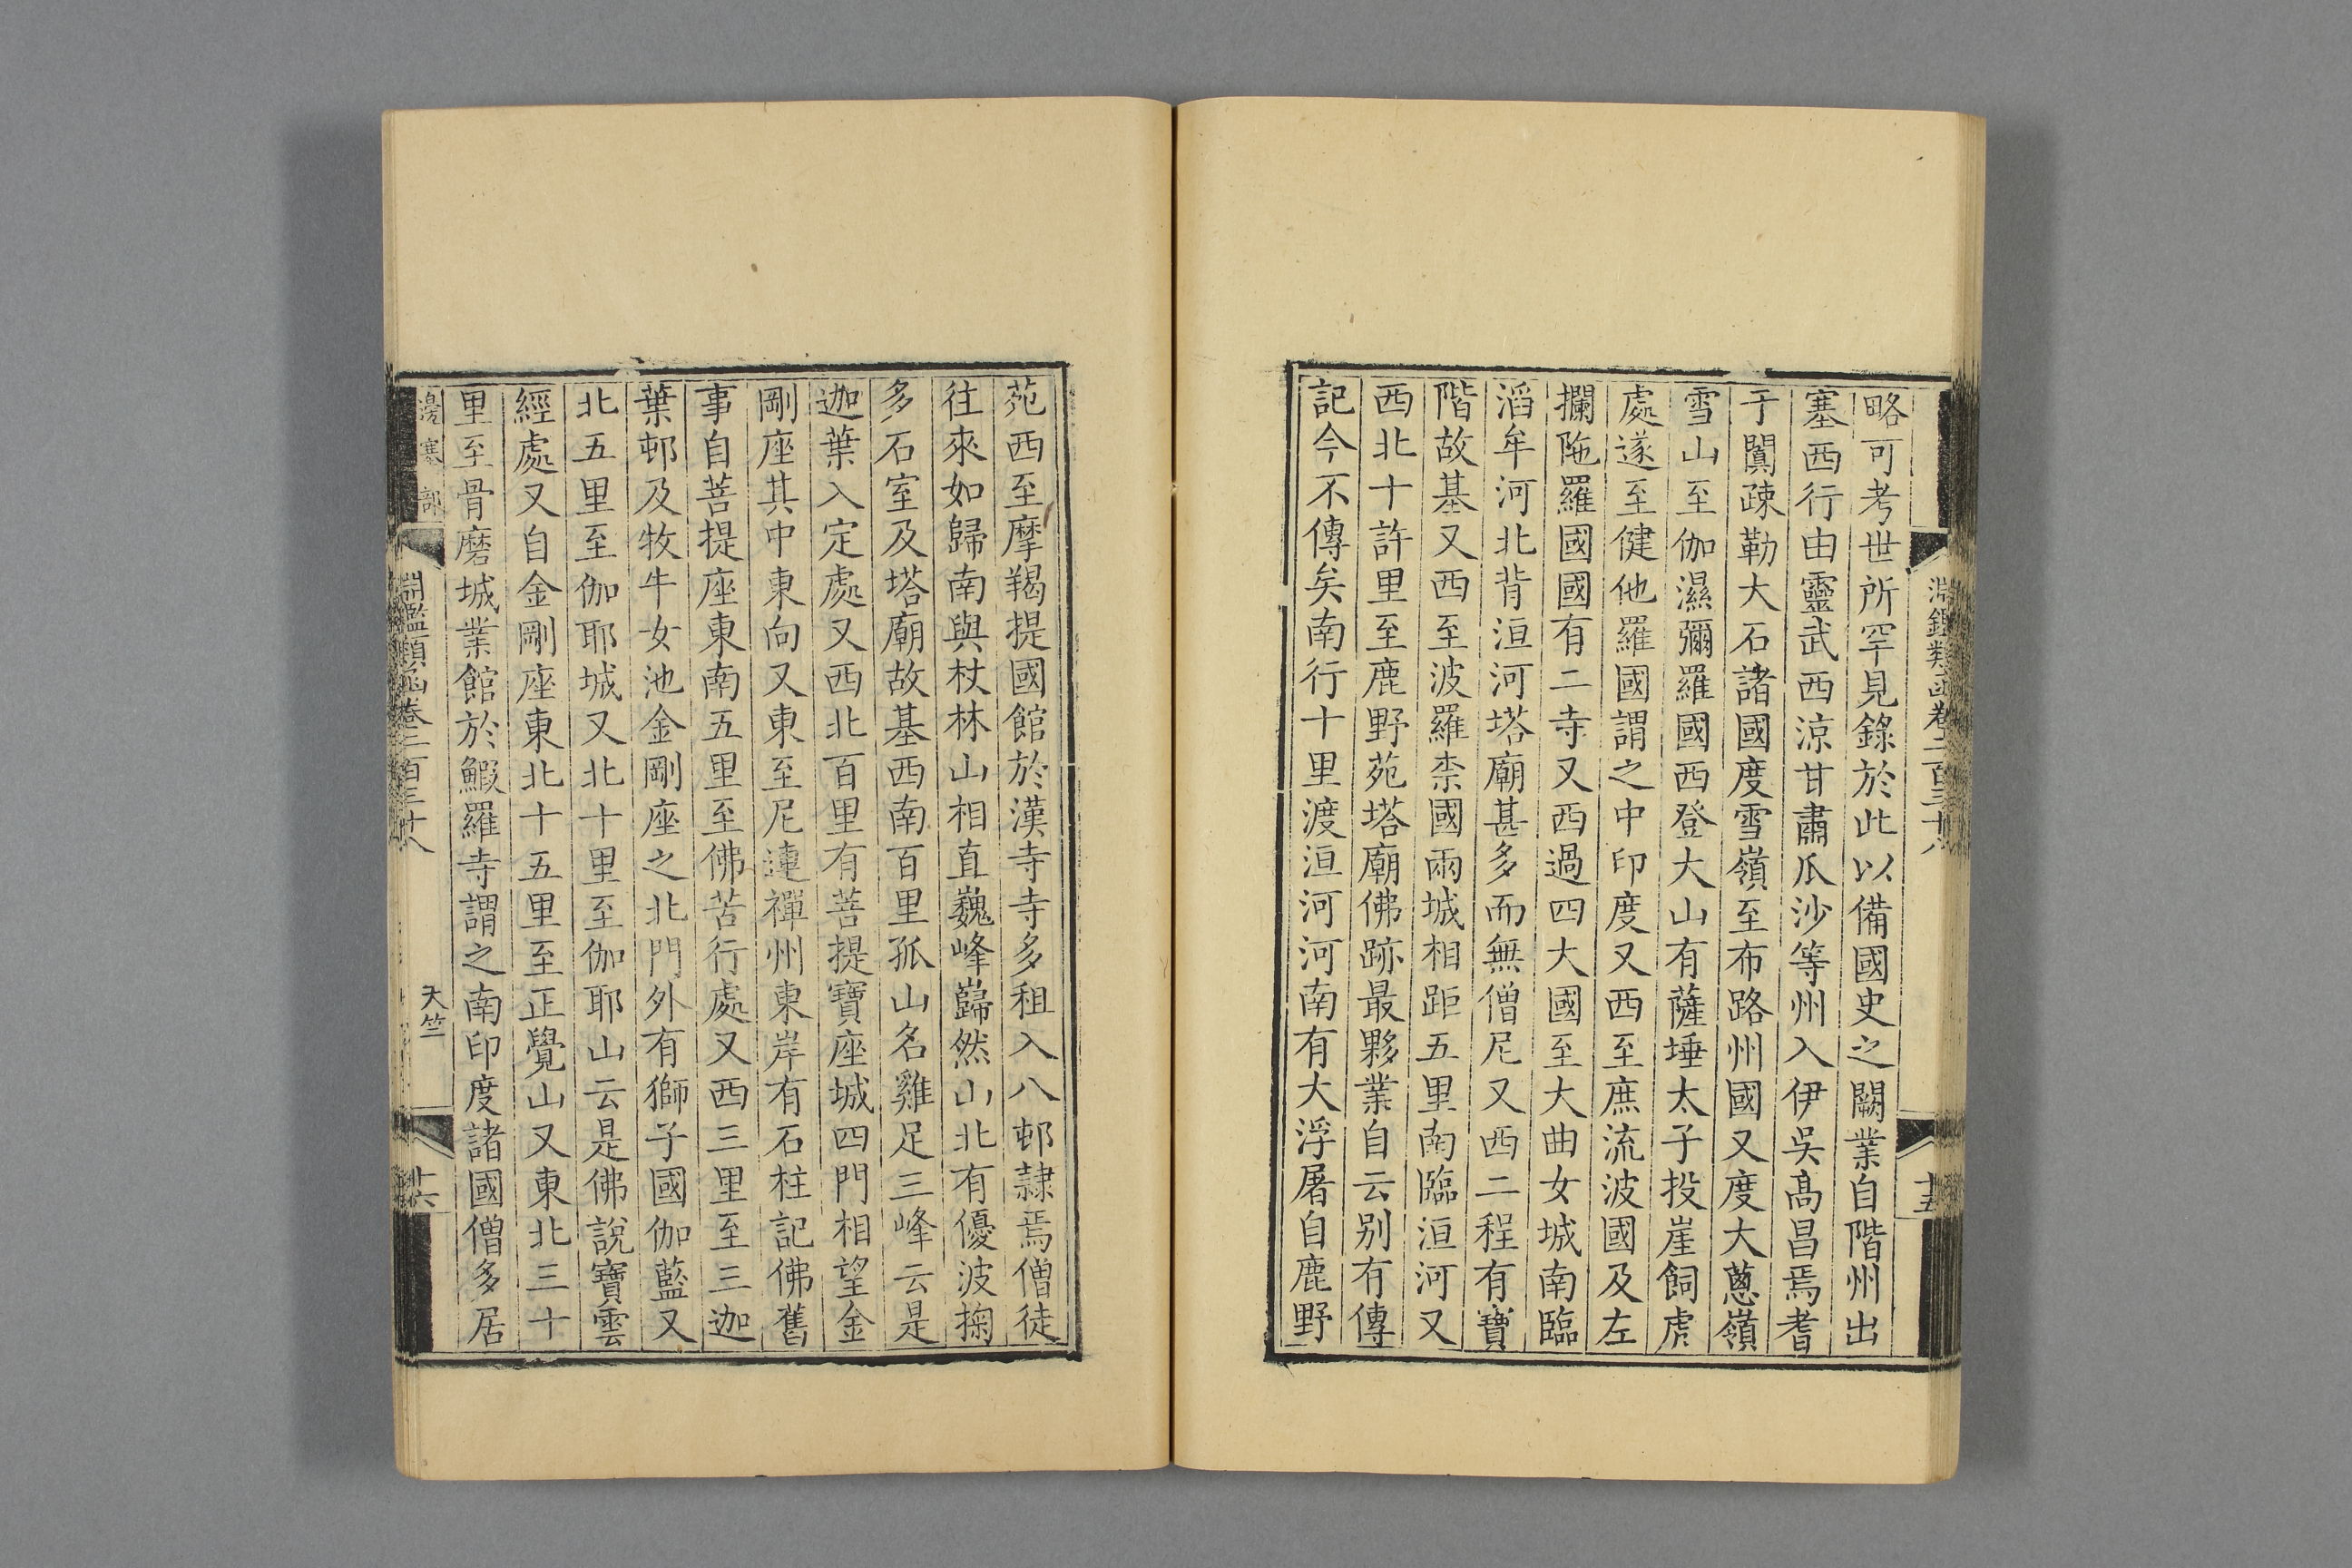 淵鑑類函卷二百三十八
十五
略可考世所罕見錄於此以備國史之闕業自階州出
塞西行由靈武西涼甘肅瓜沙等州入伊吳高昌焉耆
于闐疎勒大石諸國度雪嶺至布路州國又度大蔥嶺
雪山至伽濕彌羅國西登大山有薩埵太子投崖飼虎
處遂至健他羅國謂之中印度又西至庶流波國及左
攔陁羅國國有二寺又西過四大國至大曲女城南臨
滔牟河北背洹河塔廟甚多而無僧尼又西二程有寶
階故基又西至波羅柰國兩城相距五里南臨洹河又
西北十許里至鹿野苑塔廟佛跡最夥業自云別有傳
記今不傳矣南行十里渡洹河河南有大浮屠自鹿野
苑西至摩羯提國館於漢寺寺多租入八邨隷焉僧徒
往來如歸南與杖林山相直巍峰巋然山北有優波掬
多石室及塔廟故基西南百里孤山名雞足三峰云是
迦葉入定處又西北百里有菩提寶座城四門相望金
剛座其中東向又東至尼連禪州東岸有石柱記佛舊
事自菩提座東南五里至佛苦行處又西三里至三迦
葉邨及牧牛女池金剛座之北門外有獅子國伽藍又
北五里至伽耶城又北十里至伽耶山云是佛說寶雲
經處又自金剛座東北十五里至正覺山又東北三十
里至骨磨城業館於鰕羅寺謂之南印度諸國僧多居
邊塞部
淵鑑類函卷二百三十八
天竺
十六